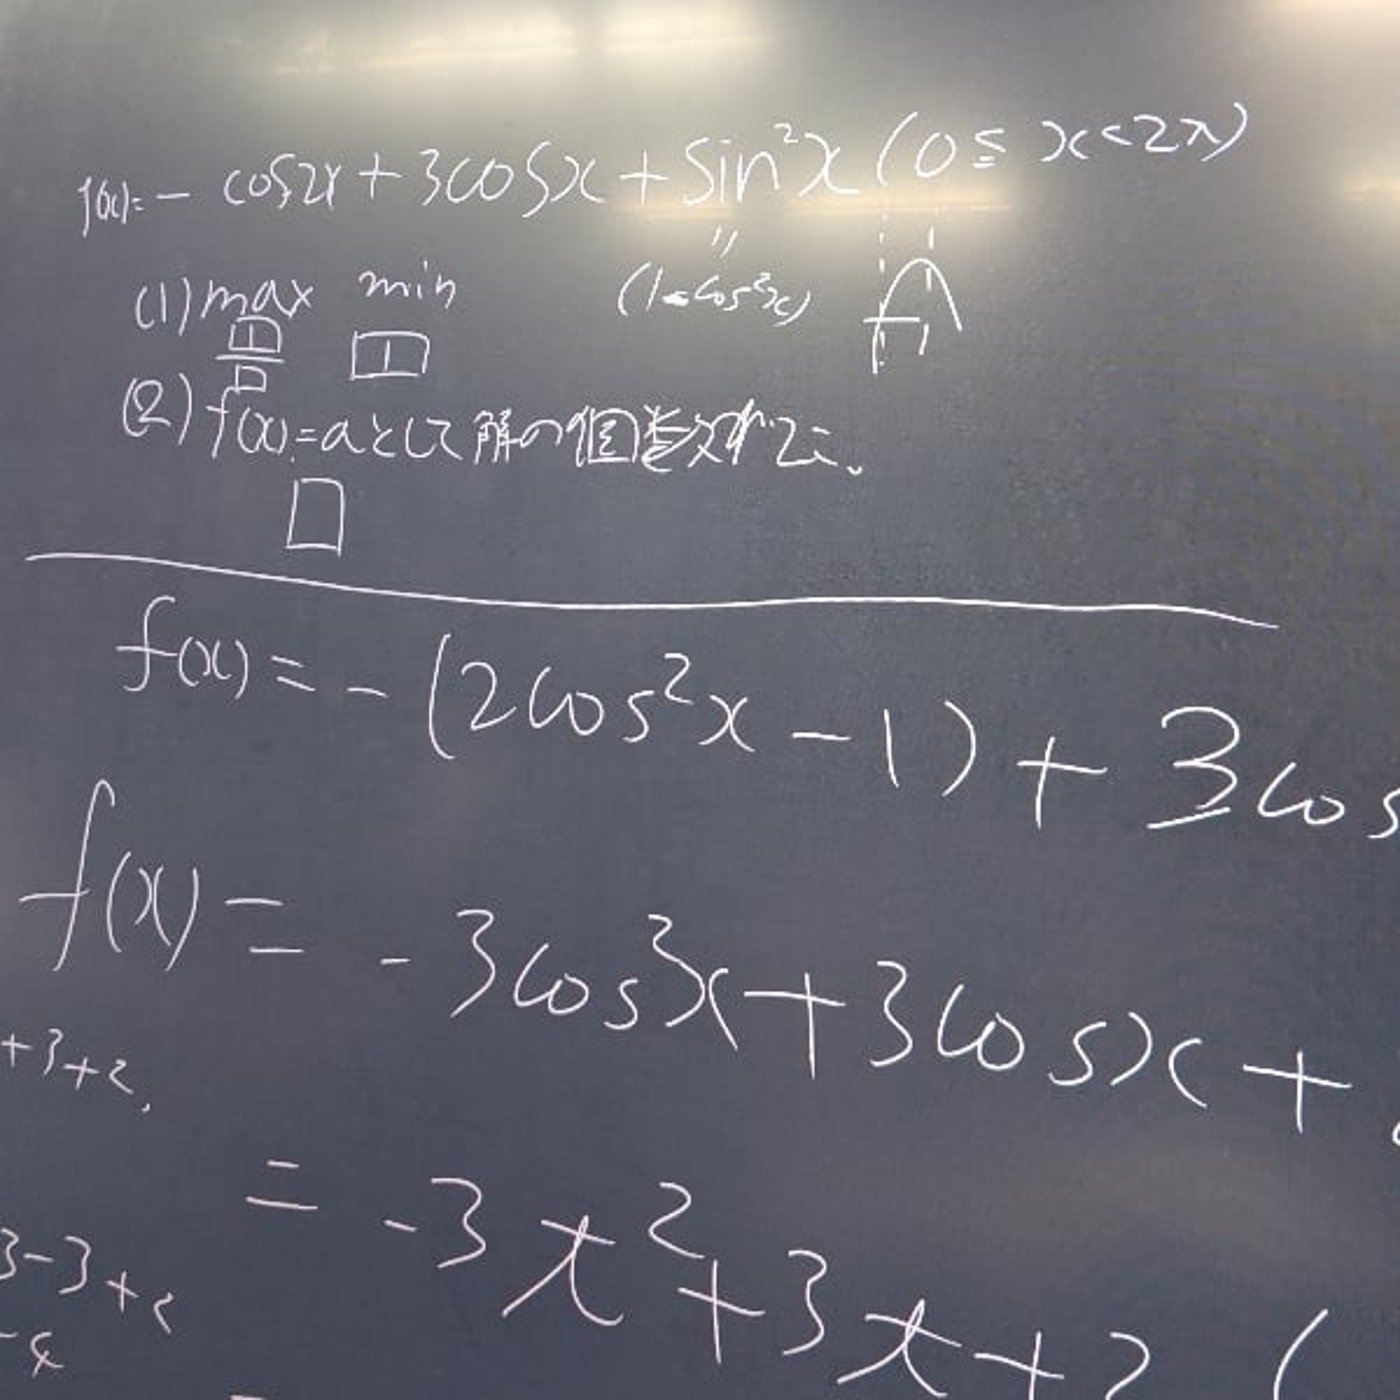 f(x)=- cos2x+3cosx+sin²x (0≦x<2π)
〃
(1)max min (1-cos²x)
(2)f(x)=aとして解の個数が2に。
f(x)=-(2cos²x-1)+3cos
f(x)=-3cos²x+3cosx+
+3+2.
=-3t²+3t+2 (
3-3+2
-4